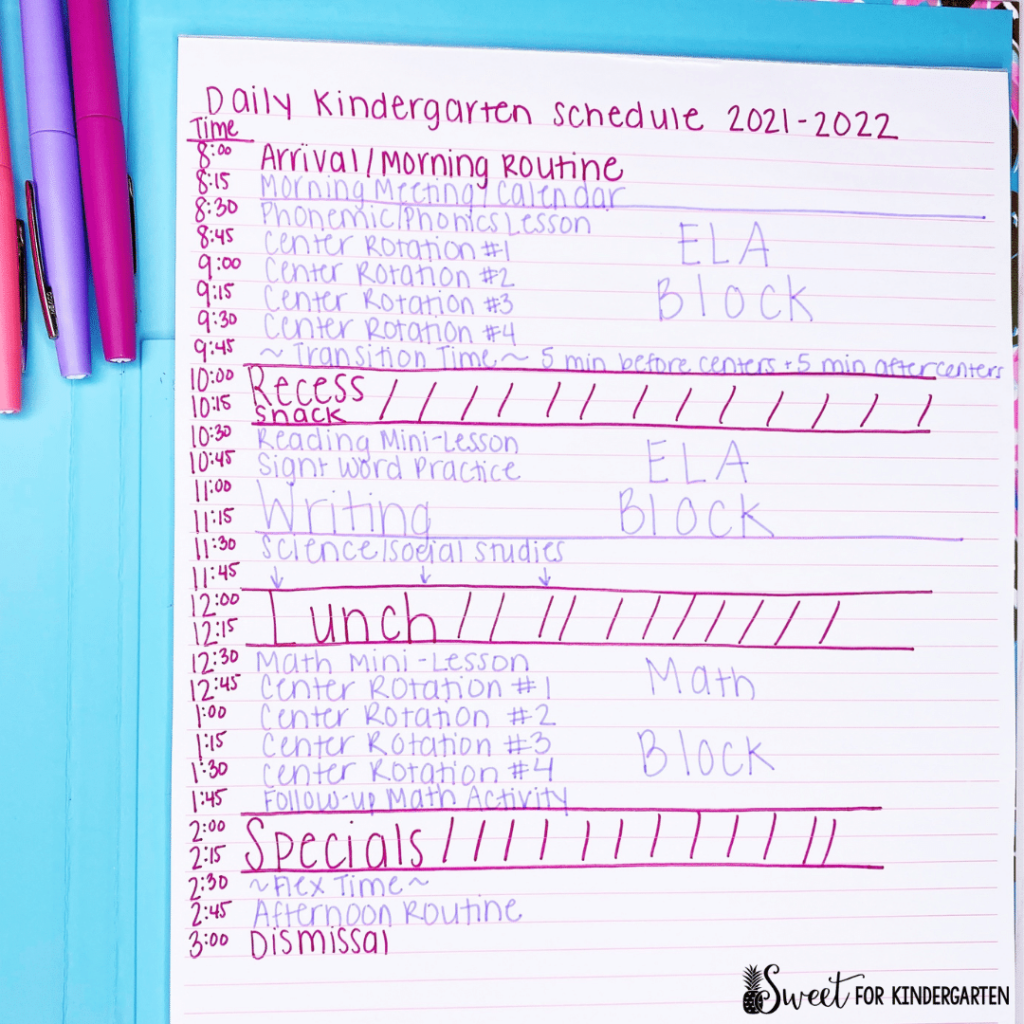 Daily Kindergarten Schedule 2021-2022
Time
8:00 Arrival/Morning Routine
8:15 Morning Meeting/Calendar
8:30 Phonemic/Phonics Lesson
8:45 Center Rotation #1 ELA
9:00 Center Rotation #2
9:15 Center Rotation #3 Block
9:30 Center Rotation #4
9:45 ~ Transition Time ~ 5 min before centers + 5 min after centers
10:00 Recess
10:15 Snack
10:30 Reading Mini-Lesson
10:45 Sight Word Practice ELA
11:00 Writing
11:15 Block
11:30 Science/Social Studies
11:45
12:00 Lunch
12:15
12:30 Math Mini-Lesson
12:45 Center Rotation #1 Math
1:00 Center Rotation #2
1:15 Center Rotation #3 Block
1:30 Center Rotation #4
1:45 Follow-up Math Activity
2:00 Specials
2:15
2:30 ~Flex Time~
2:45 Afternoon Routine
3:00 Dismissal
Sweet FOR KINDERGARTEN